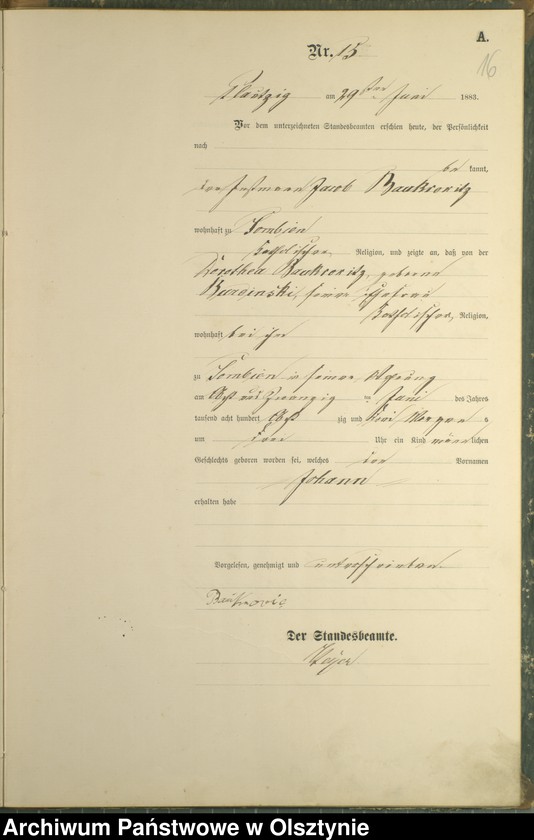 A.
Nr. 15
16
Plautzig am 29ten Juni 1883.
Vor dem unterzeichneten Standesbeamten erschien heute, der Persönlichkeit
nach
be kannt,
der Jacob Baukrowitz
wohnhaft zu Sombien
katholischer Religion, und zeigte an, daß von der
Dorothea Baukrowitz, geborene
seiner Ehefrau
katholischer Religion,
wohnhaft bei ihm
zu Sombien in seiner Wohnung
am Acht und Zwanzig ten Juni des Jahres
tausend acht hundert Acht zig und drei Morgens
um drei Uhr ein Kind männlichen
Geschlechts geboren worden sei, welches den Vornamen
Johann
erhalten habe
Vorgelesen, genehmigt und unterschrieben.
Der Standesbeamte.
Archiwum Państwowe w Olsztynie